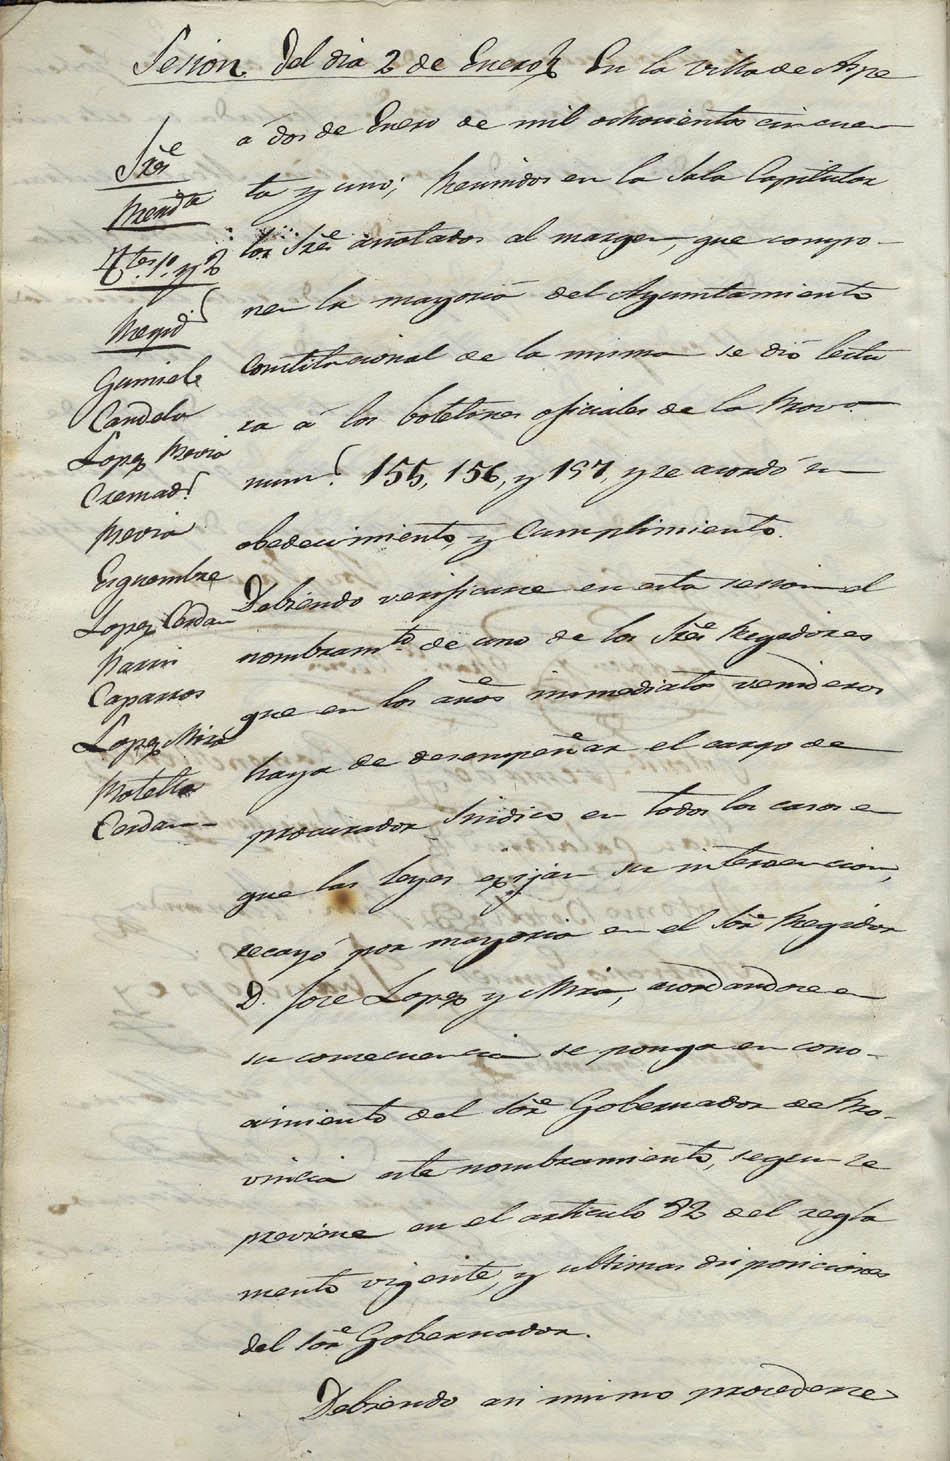 Sesion del dia 2 de Enero En la villa de Aspe
á dos de Enero de mil ochocientos cincuen
ta y uno; Reunidos en la Sala Capitular
los Sres anotados al margen, que compo-
nen la mayoria del Ayuntamiento
Constitucional de la misma se dió lectu
ra á los boletines oficiales de la Prova.
nums. 155, 156, y 157, y se acordó su
obedecimiento y Cumplimiento.
Debiendo verificarse en esta sesion el
nombramto. de uno de los Sres Regidores
que en los años immediatos venideros
haya de desempeñar el cargo de
procurador Sindico en todos los casos en
que las leyes exijan su intervencion,
recayó por mayoria en el Sor. Regidor
D. Jose Lopez y Mira, acordandose en
su consecuencia se ponga en cono-
cimiento del Sor. Gobernador de Pro-
vincia este nombramiento, segun se
previene en el articulo 82 del regla
mento vigente, y ultimas disposiciones
del Sor. Gobernador.
Debiendo asi mismo procederse
Sres
Presidta
Ttes. 1º. y 2º
Regids.
Gumiel
Candela
Lopez Pavia
Cremads.
Pavia
Esquembre
Lopez Cerdan
Caparros
Lopez Mira
Botella
Cerdan